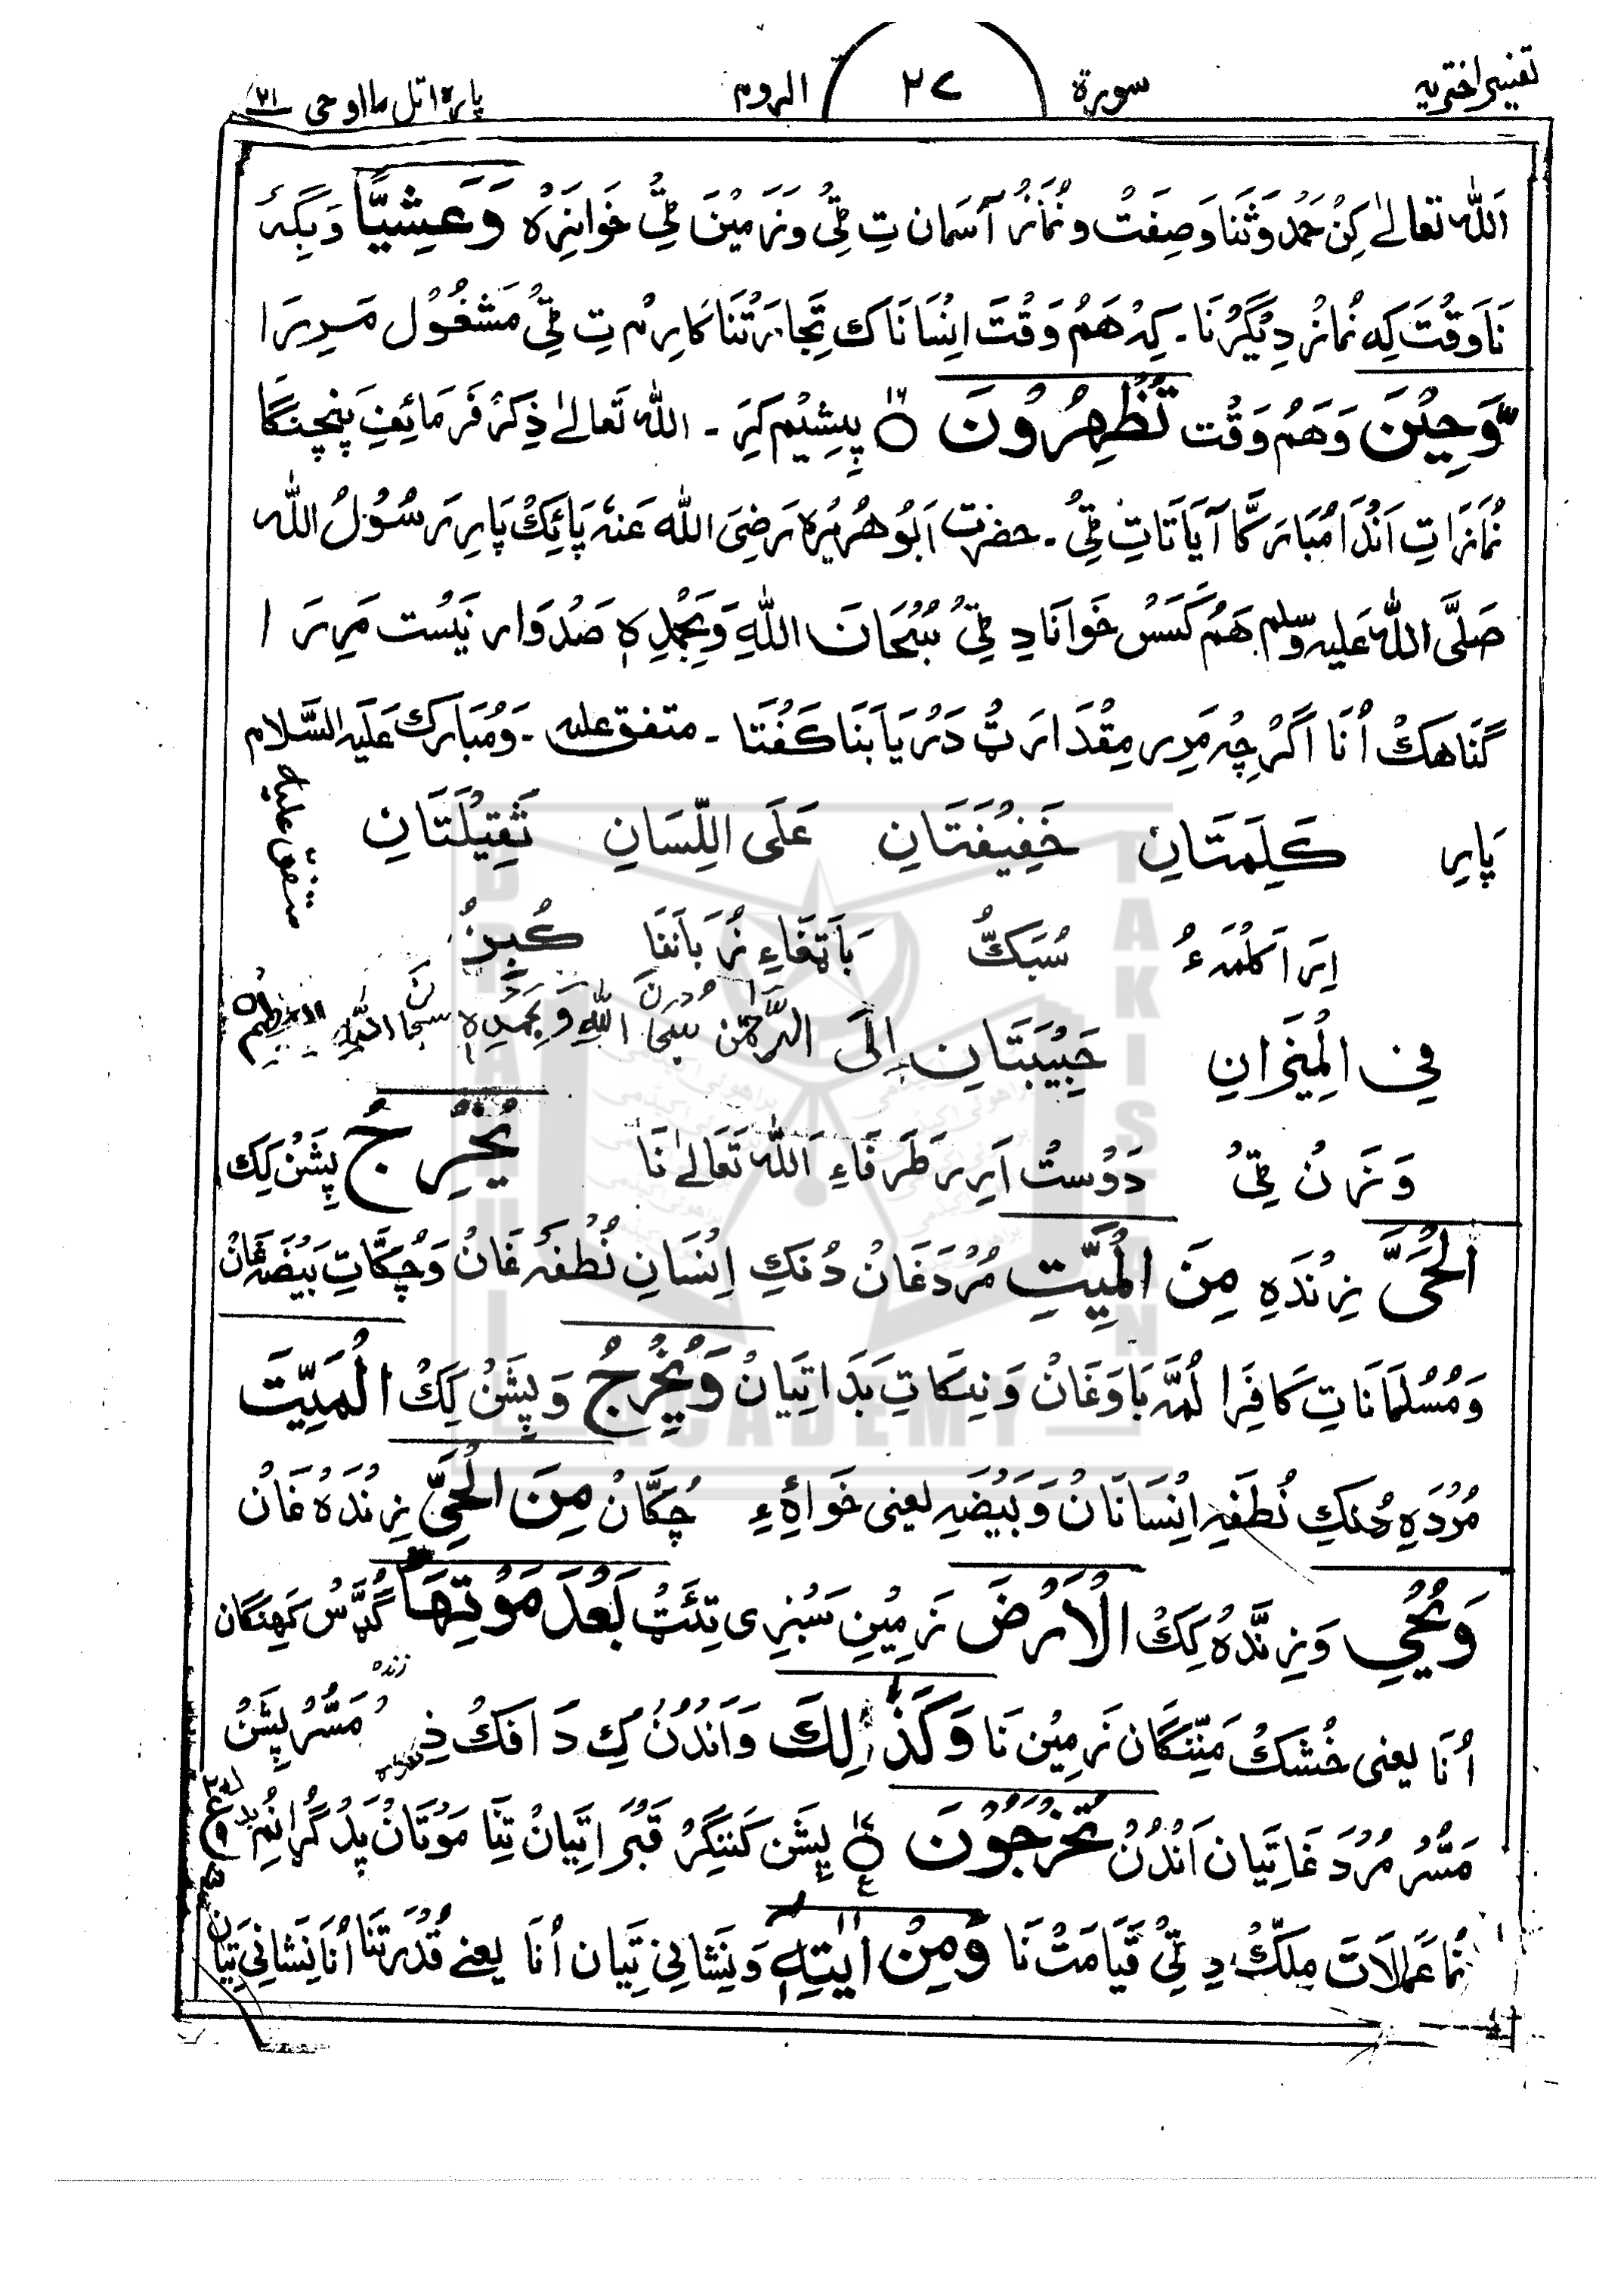 تفسیر اختریہ سورۃ ٢٧ الروم پارہ اتل ما اوحی ٢١
اَللہ تعالیٰ کِنْ حَمْد وَثَنا وَصِفَتْ و نُمَازْ آسَمان تِ ٹِیْ وَزَمِیْنَ ٹِیْ خَوانِرہْ وَعَشِیًّا وَبِگَہْ
نَاوَقْتَ کِہ نُمازْ دِیْگَرْنَا۔ کِہْ هَمُو وَقْتَ اِنْسَانَاک تِجَارَتْنَا کَارِمْ تِ ٹِیْ مَشْغُوْل مَرِرَا
وَّحِیْنَ وَهَمُو وَقْت تُظْهِرُوْنَ ۝ پِیشِیْم کِرَ ۔ اللہ تَعالیٰ ذِکرْ فَرمَائِفِ پَنچنگا
نُمَازَاتِ اَنْدَا مُبَارَکَّا آیَاتَاتِ ٹِیْ ۔ حضرت اَبُو هُرَیْرَہ رَضِیَ اللہ عَنہٗ پَائِکْ پَارِ رَسُوْلُ اللہ
صَلَّی اللہُ عَلیہِ وسلم هَمُو کَسَسْ خَوانَا دِ ٹِیْ سُبْحَانَ اللهِ وَبِحَمْدِہٖ صَدْ وَار نَیَسْت مَرِرَ ا
گُنَاهکْ اُنَا اَگَرْچِہ مَرِر مِقْدَار ٹ دَرْیَابَنَا کَفْتَا ۔ متفق علیہ ۔ وَمُبَارک عَلَیْہِ السَّلام
پَارِ کَلِمَتَانِ خَفِیْفَتَانِ عَلَی اللِّسَانِ ثَقِیْلَتَانِ
متفق علیہ
اِرَا کَلْمَہءُ سُبَکُّ بَاتِهَاءِ زُبَانَنَا کُبِنُ
فِی الْمِیْزَانِ حَبِیْبَتَانِ اِلَی الرَّحْمٰن سُبْحَانَ اللهِ وَبِحَمْدِہٖ سبحان اللہ العظیم
وَزَنُ ٹِیْ دَوْستْ اَرِر طَرَفَاءِ اَللہ تَعَالیٰ نَا یُخْرِجُ پِشَنْ کِک
الْحَیَّ زِنْدَہِ مِنَ الْمَیِّتِ مُرْدَغَانْ دُنکِ اِنْسَانِ نُطْفَہ غَانْ وَچُکَّاتِ بَیْضَہ غَانْ
وَمُسْلمَانَاتِ کَافِرَا لُمَّہ بَاوَغَانْ وَنیکَاتِ بَدَاتِیَانْ وَیُخْرِجُ وَپِشَنْ کِکْ الْمَیِّتَ
مُرْدَہِ دُنکِ نُطْفَہِ اِنْسَانَانْ وَبَیْضَہِ یعنی خَوَاہءِ چُکَّانْ مِنَ الْحَیِّ زِنْدَہ غَانْ
وَیُحْیِ وَزِنْدَہ کِکْ الْاَرْضَ زَمِیْنِ سَبْزِی تِئَٹْ بَعْدَ مَوْتِهَا گُڈَّسْ کَهِنگَان
اُنَا یعنی خُشکْ مَنِّنگَان زَمِیْن نَا وَکَذٰلِكَ وَاَنْدُنْ کِ دَافکْ زندہ مَسُّرْ پِشَنْ
مَسُّر مُرْدَغَاتِیَان اَنْدُنْ تُخْرَجُوْنَ ۝ پِشَن کَنِنگِرْ قَبَرَاتِیَانْ تِنَا مَوْتَانْ پَدْ
نُمَا عَمَالَات مِلکْ دِ ٹِیْ قِیَامَتْ نَا وَمِنْ اٰیٰتِہٖ وَنِشانِی تِیَان اُنَا یعنے قُدْرَتنَا اُنَا نِشانِی تِیَان